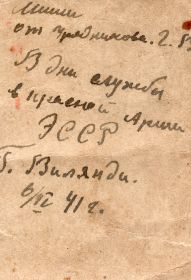 Миши
от Урядникова. г. В
В дни службы
в красной Армии
ЭССР
г. Вилянди.
6/VI 41 г.